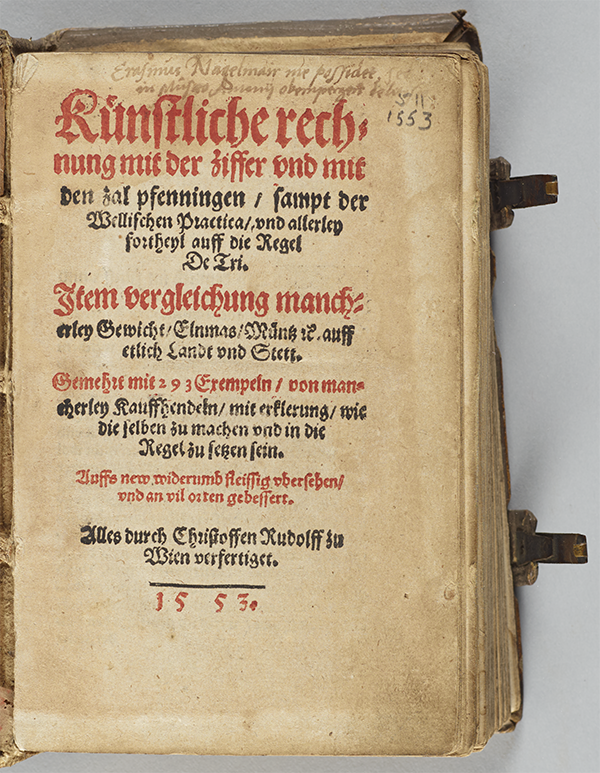 Erasmus Nagelmair me possidet,
in
1553
Künstliche rech-
nung mit der ziffer vnd mit
den zal pfenningen / sampt der
Wellischen Practica / vnd allerley
fortheyl auff die Regel
De Tri.
Item vergleichung manch-
erley Gewicht / Elnmas / Müntz ꝛc. auff
etlich Landt vnd Stett.
Gemehrt mit 293 Exempeln / von man-
cherley Kauffhendeln / mit erklerung / wie
die selben zu machen vnd in die
Regel zu setzen sein.
Auffs new widerumb fleissig vbersehen /
vnd an vil orten gebessert.
Alles durch Christoffen Rudolff zu
Wien verfertiget.
1553.